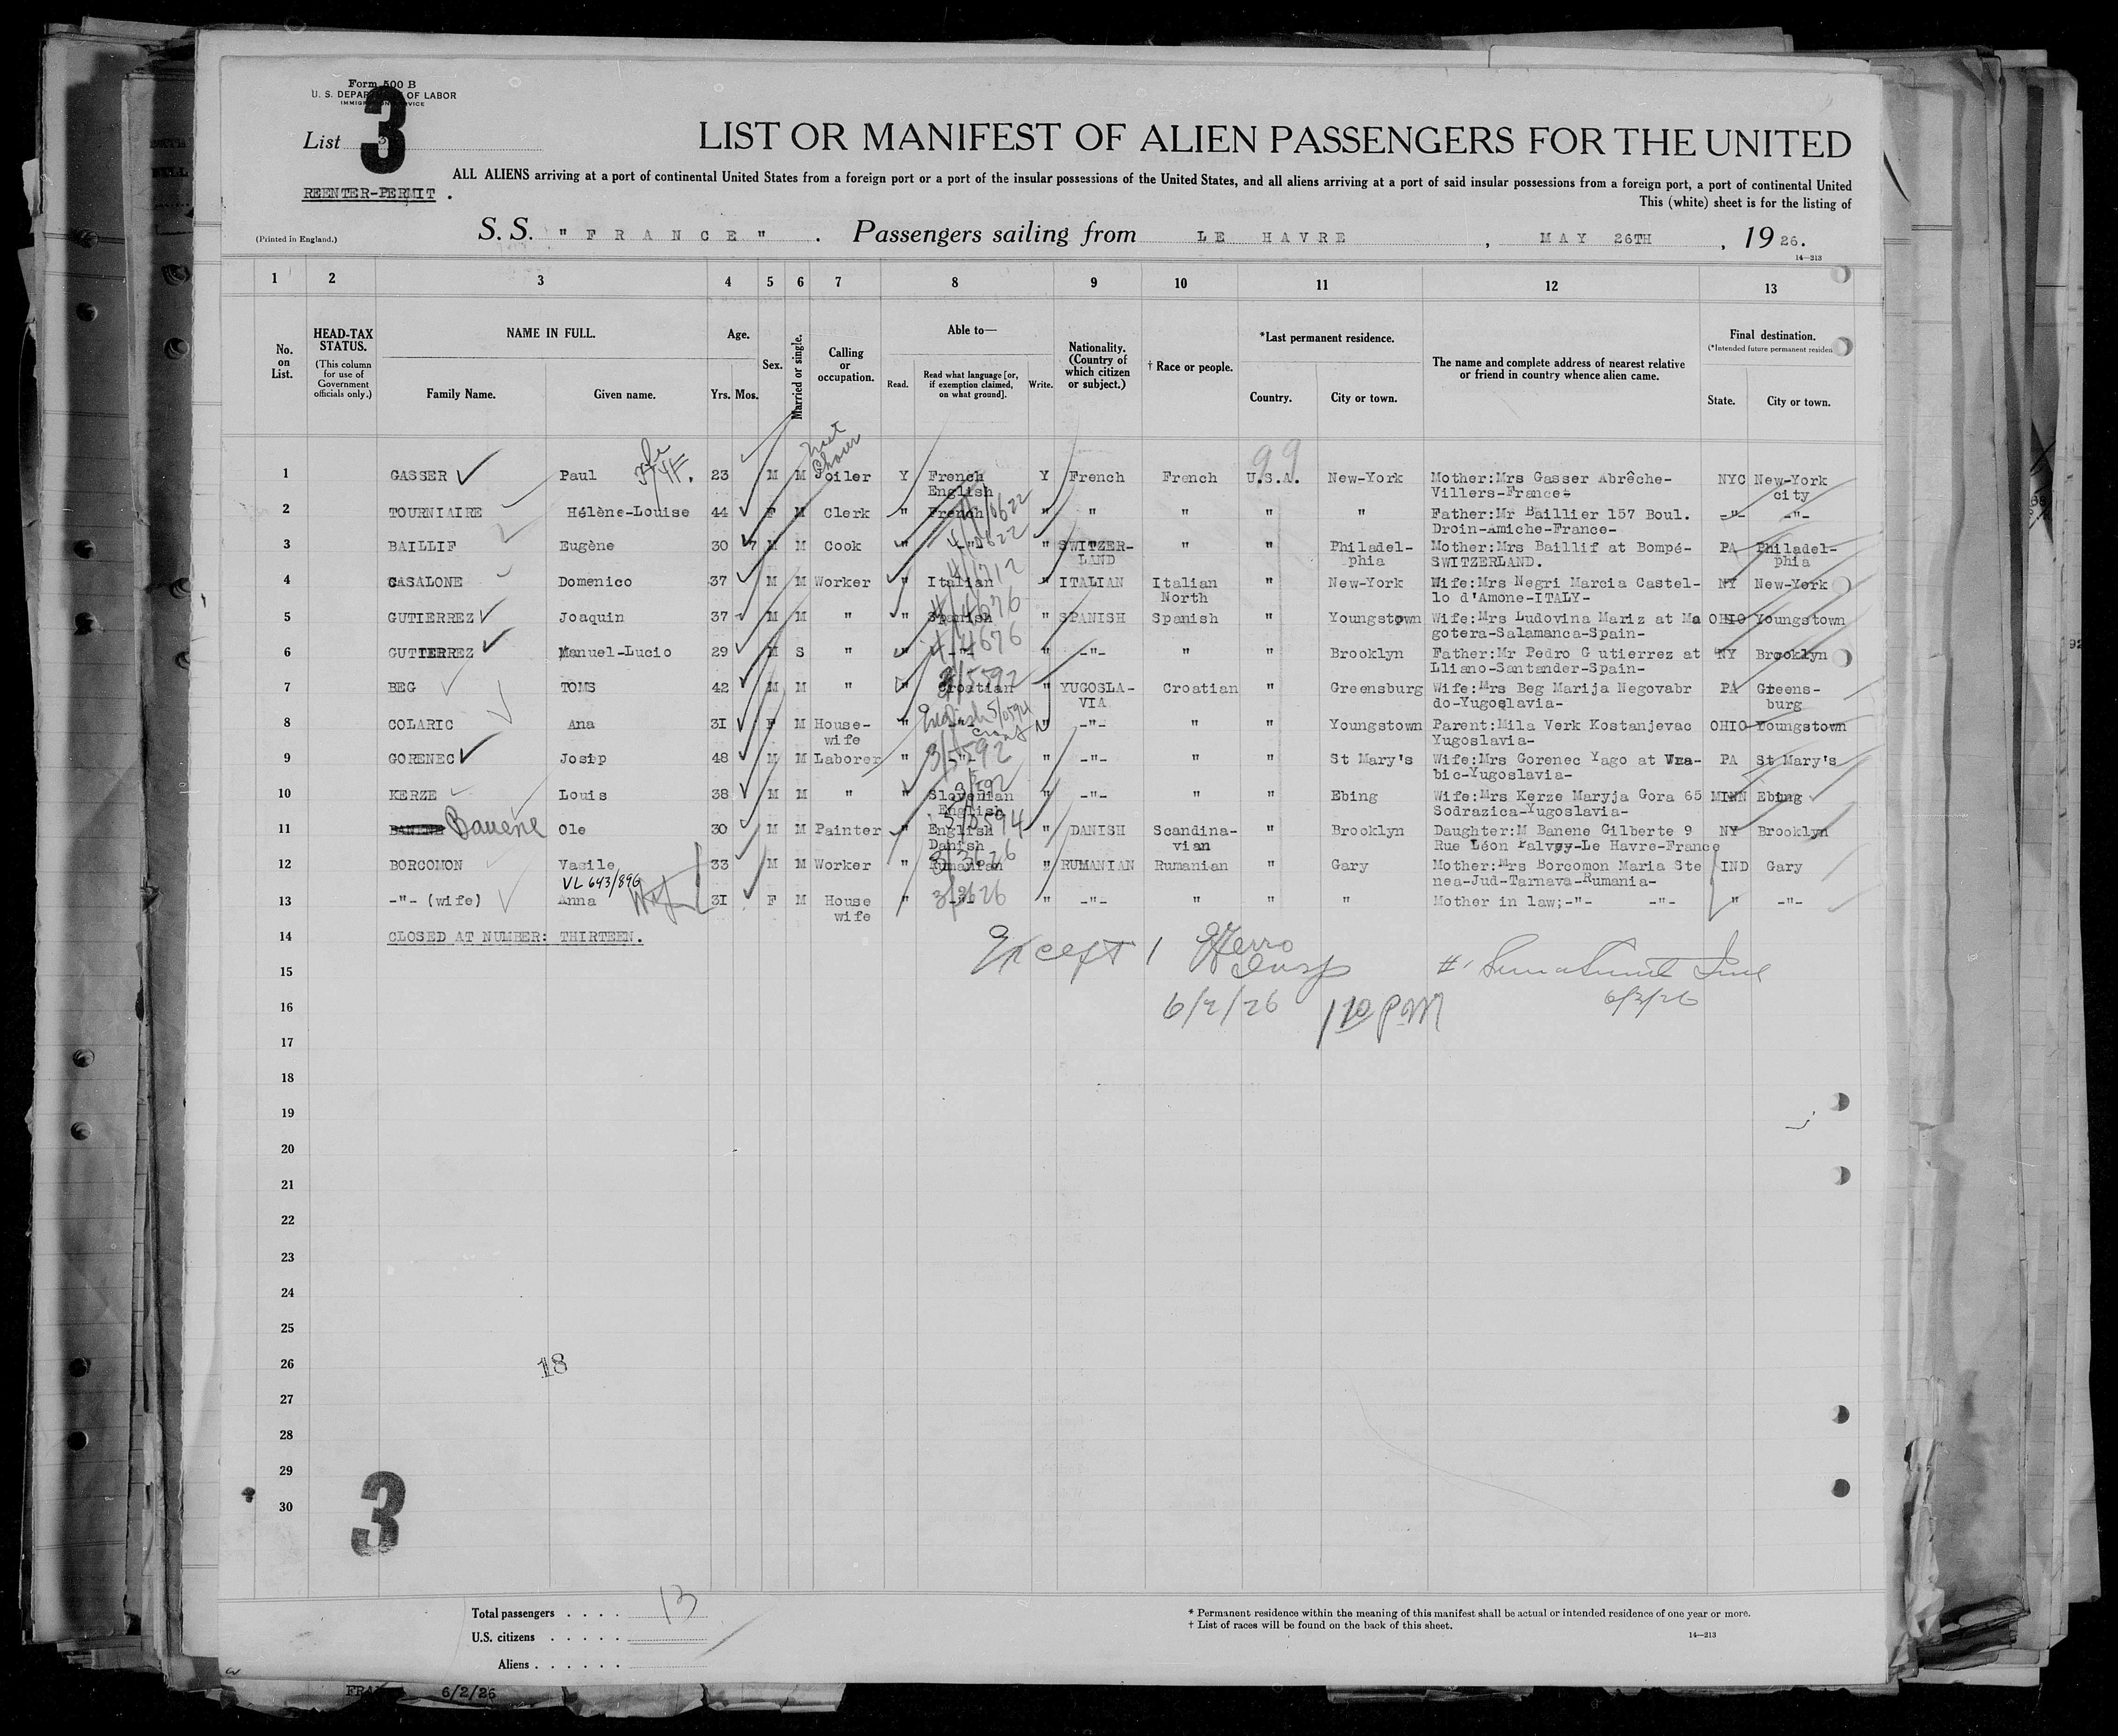 Form 500 B
U. S. DEPARTMENT OF LABOR
IMMIGRATION SERVICE
List 3
3
REENTER-PERMIT .
LIST OR MANIFEST OF ALIEN PASSENGERS FOR THE UNITED
ALL ALIENS arriving at a port of continental United States from a foreign port or a port of the insular possessions of the United States, and all aliens arriving at a port of said insular possessions from a foreign port, a port of continental United
This (white) sheet is for the listing of
(Printed in England.)
S. S. "FRANCE" . Passengers sailing from LE HAVRE , MAY 26TH , 1926.
14—213
1 2 3 4 5 6 7 8 9 10 11 12 13
No. on List.
HEAD-TAX STATUS.
(This column for use of Government officials only.)
NAME IN FULL.
Family Name. Given name.
Age.
Yrs. Mos.
Sex.
Married or single.
Calling or occupation.
Able to—
Read. Read what language [or, if exemption claimed, on what ground]. Write.
Nationality. (Country of which citizen or subject.)
† Race or people.
*Last permanent residence.
Country. City or town.
The name and complete address of nearest relative or friend in country whence alien came.
Final destination.
(*Intended future permanent residen
State. City or town.
99
1 GASSER Paul 23 M M Oiler Y French Y French French U.S.A. New-York Mother:Mrs Gasser Abrêche- NYC New-York
English Villers-France- city
2 TOURNIAIRE Hélène-Louise 44 F M Clerk " French " " " " " Father:Mr Baillier 157 Boul. -"- -"-
4/0622 Droin-Amiche-France-
3 BAILLIF Eugène 30 7 M M Cook " -"- " SWITZER- " " Philadel- Mother:Mrs Baillif at Bompé- PA Philadel-
4/0622 LAND phia SWITZERLAND. phia
4 CASALONE Domenico 37 M M Worker " Italian " ITALIAN Italian " New-York Wife:Mrs Negri Marcia Castel- NY New-York
North lo d'Amone-ITALY-
5 GUTIERREZ Joaquin 37 M M " " Spanish " SPANISH Spanish " Youngstown Wife:Mrs Ludovina Mariz at Ma OHIO Youngstown
4/4676 gotera-Salamanca-Spain-
6 GUTIERREZ Manuel-Lucio 29 M S " " -"- " -"- " " Brooklyn Father:Mr Pedro G utierrez at NY Brooklyn
4/4676 Lliano-Santander-Spain-
7 BEG TOMS 42 M M " " Croatian " YUGOSLA- Croatian " Greensburg Wife:Mrs Beg Marija Negovabr PA Greens-
3/5592 VIA do-Yugoslavia- burg
8 COLARIC Ana 31 F M House- " English " -"- " " Youngstown Parent:Mila Verk Kostanjevac OHIO Youngstown
wife 5/0594 Yugoslavia-
9 GORENEC Josip 48 M M Laborer " -"- " -"- " " St Mary's Wife:Mrs Gorenec Yago at Vra- PA St Mary's
3/5592 bic-Yugoslavia-
10 KERZE Louis 38 M M " " Slovenian " -"- " " Ebing Wife:Mrs Kerze Maryja Gora 65 MINN Ebing
English Sodrazica-Yugoslavia-
11 Banene Ole 30 M M Painter " English " DANISH Scandina- " Brooklyn Daughter:M Banene Gilberte 9 NY Brooklyn
Danish vian Rue Léon Palvey-Le Havre-France
12 BORCOMON Vasile 33 M M Worker " Rumanian " RUMANIAN Rumanian " Gary Mother:Mrs Borcomon Maria Ste IND Gary
VL 643/896 3/3626 nea-Jud-Tarnava-Rumania-
13 -"- (wife) Anna 31 F M House " -"- " -"- " " " Mother in law;-"- -"- " -"-
wife 3/3626
14 CLOSED AT NUMBER: THIRTEEN.
Except 1
Insp
15
16 6/2/26 1 10 PM 6/2/26
17
18
19
20
21
22
23
24
25
26
18
27
28
29
30
3
Total passengers . . . . 13
U.S. citizens . . . . .
Aliens . . . . . .
* Permanent residence within the meaning of this manifest shall be actual or intended residence of one year or more.
† List of races will be found on the back of this sheet.
14—213
6/2/26